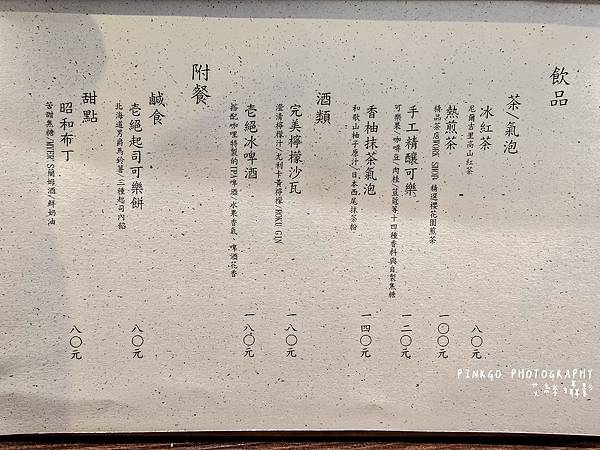 飲品
茶/氣泡
冰紅茶
尼爾吉里高山紅茶
八〇元
熱煎茶
精品茶店WORK SHOP 精選櫻花園煎茶
一〇〇元
手工精釀可樂
可樂果/咖啡豆/肉桂/荳蔻等十四種香料與自製焦糖
一二〇元
香柚抹茶氣泡
和歌山柚子原汁/日本西尾抹茶粉
一四〇元
酒類
完美檸檬沙瓦
澄清檸檬汁/尤利卡黃檸檬/ROKU GIN
一八〇元
壱絕冰啤酒
搭配咖哩特製的IPA啤酒 水果香氣、啤酒花香
一八〇元
附餐
鹹食
壱絕起司可樂餅
北海道男爵馬鈴薯/三種起司內餡
八〇元
甜點
昭和布丁
苦甜焦糖/MYER'S蘭姆酒/鮮奶油
八〇元
PINKGO PHOTOGRAPHY